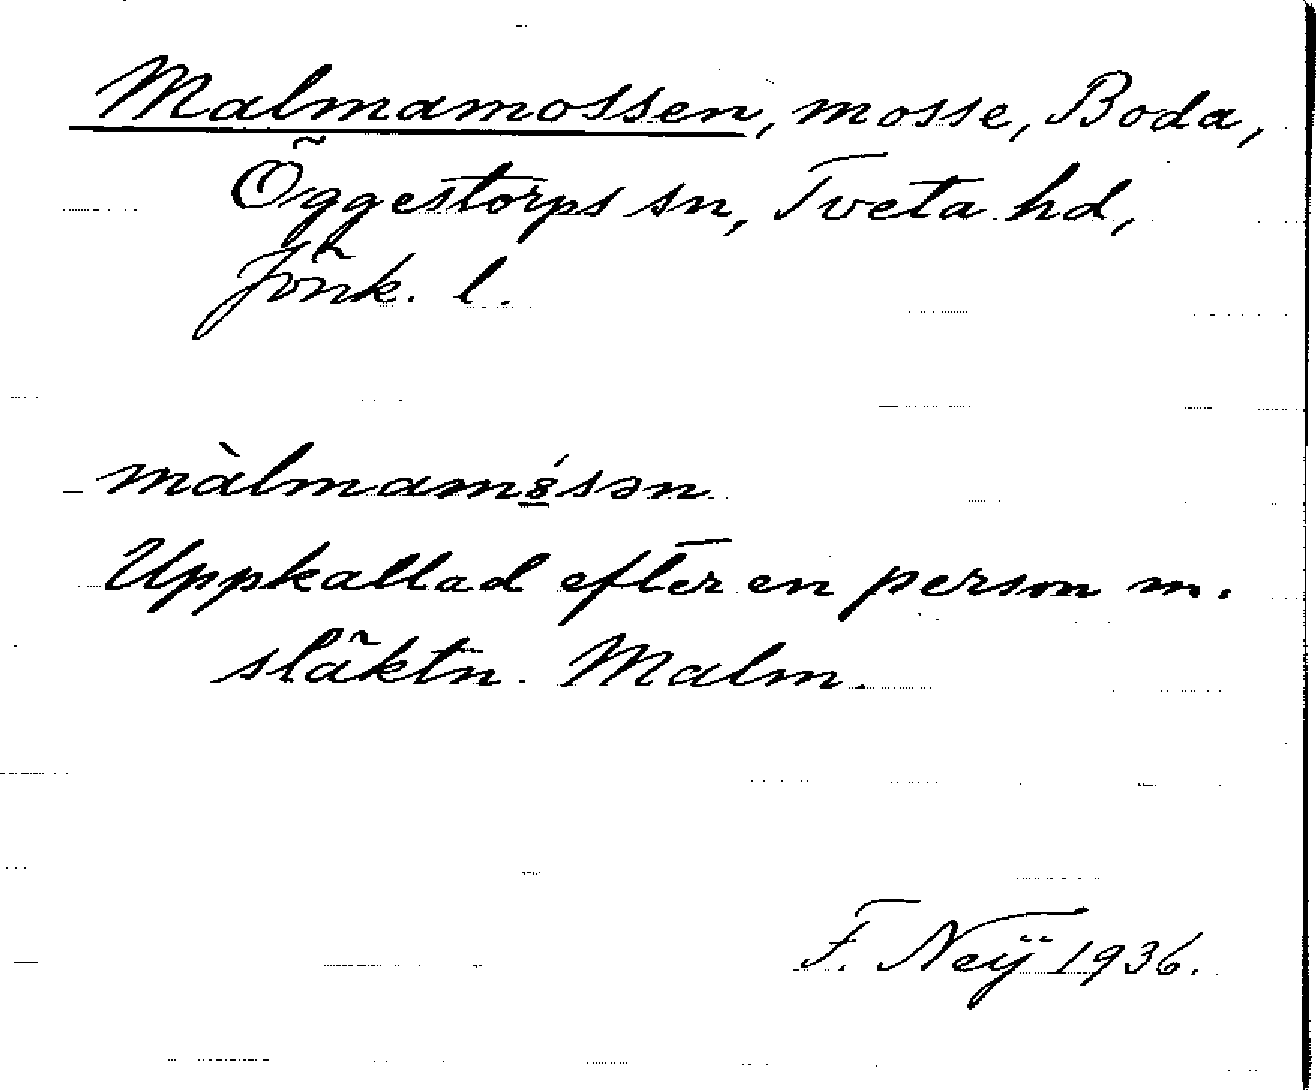 Malmamossen, mosse, Boda,
Öggestorps sn, Tveta hd,
Jönk. l.
màlmam8́sən
Uppkallad efter en person m.
släktn. Malm.
F. Neÿ 1936.